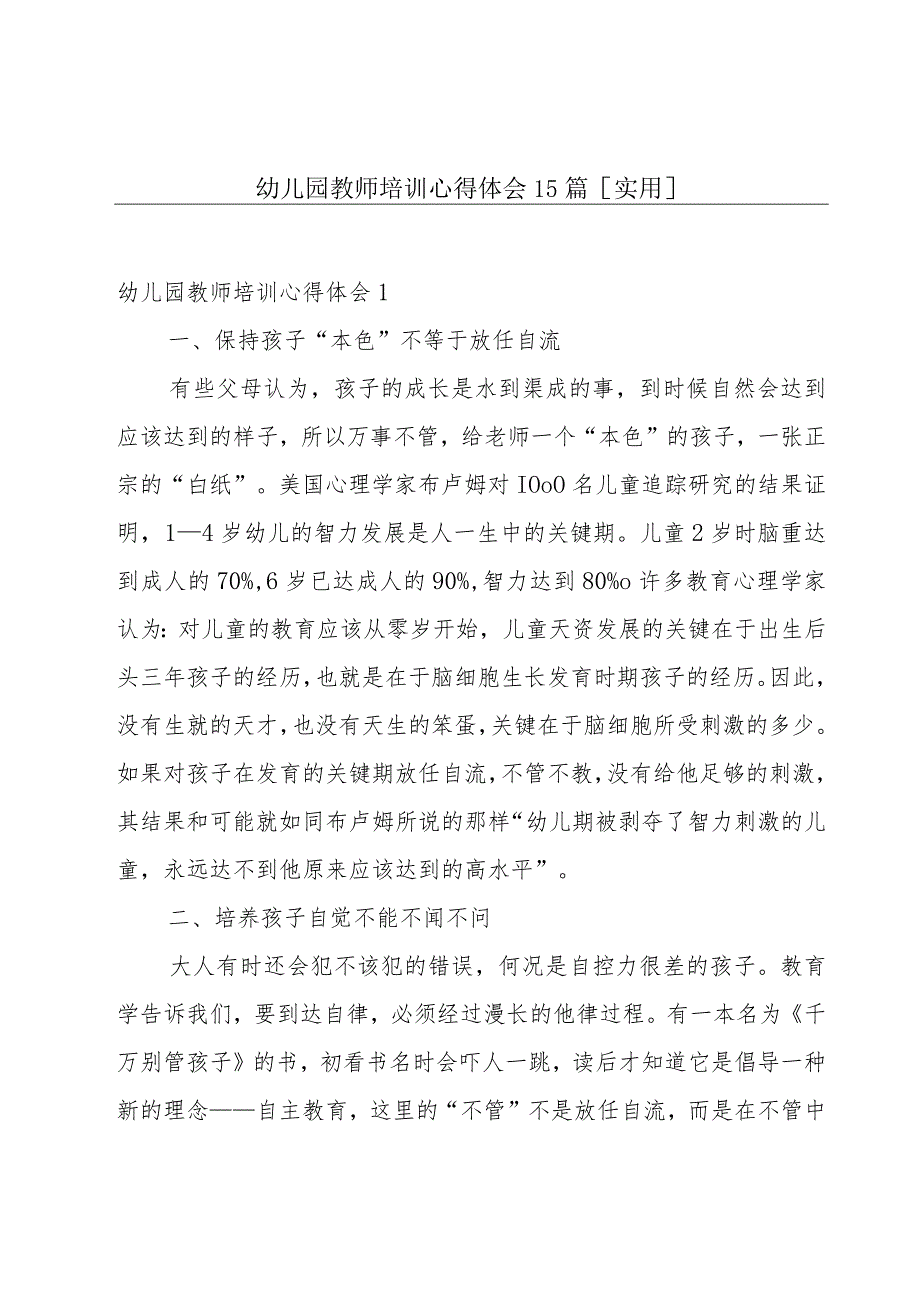 幼儿园教师培训心得体会15篇［实用］
幼儿园教师培训心得体会1
一、保持孩子“本色”不等于放任自流
有些父母认为，孩子的成长是水到渠成的事，到时候自然会达到
应该达到的样子，所以万事不管，给老师一个“本色”的孩子，一张正
宗的“白纸”。美国心理学家布卢姆对IOoO名儿童追踪研究的结果证
明，1—4岁幼儿的智力发展是人一生中的关键期。儿童2岁时脑重达
到成人的70%,6岁已达成人的90%,智力达到80%o许多教育心理学家
认为:对儿童的教育应该从零岁开始，儿童天资发展的关键在于出生后
头三年孩子的经历,也就是在于脑细胞生长发育时期孩子的经历。因此，
没有生就的天才,也没有天生的笨蛋,关键在于脑细胞所受刺激的多少。
如果对孩子在发育的关键期放任自流,不管不教,没有给他足够的刺激，
其结果和可能就如同布卢姆所说的那样“幼儿期被剥夺了智力刺激的儿
童，永远达不到他原来应该达到的高水平”。
二、培养孩子自觉不能不闻不问
大人有时还会犯不该犯的错误，何况是自控力很差的孩子。教育
学告诉我们，要到达自律，必须经过漫长的他律过程。有一本名为《千
万别管孩子》的书，初看书名时会吓人一跳，读后才知道它是倡导一种
新的理念——自主教育，这里的“不管”不是放任自流，而是在不管中